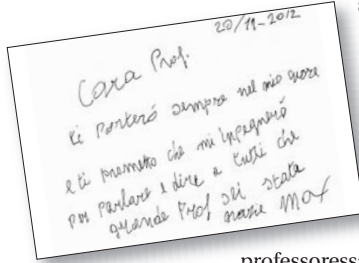 20/11-2012
Cara Prof.
ti porterò sempre nel mio cuore
e ti prometto che mi impegnerò
per parlare e dire a tutti che
grande Prof sei stata
grazie Max
professoress